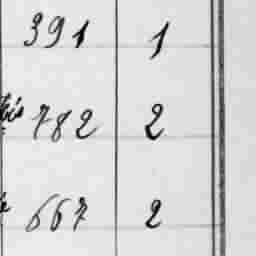 391 1
782 2
667 2